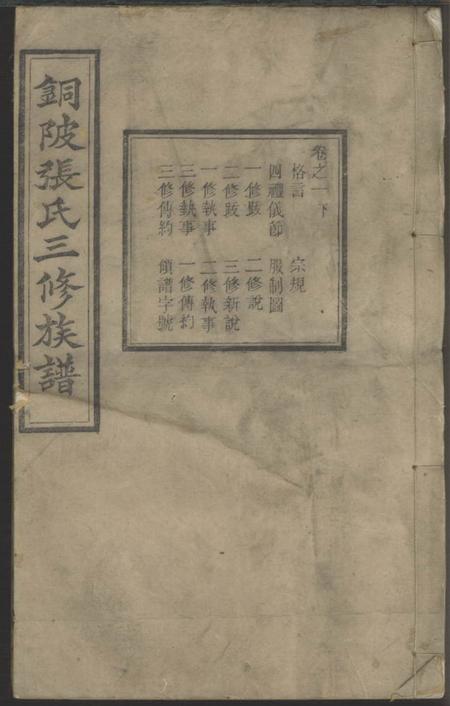 銅陂張氏三修族譜
卷之一下
格言 宗規
四禮儀節 服制圖
一修跋 二修說
二修跋 三修新說
一修執事 二修執事
三修執事 一修傳約
三修傳約 領譜字號